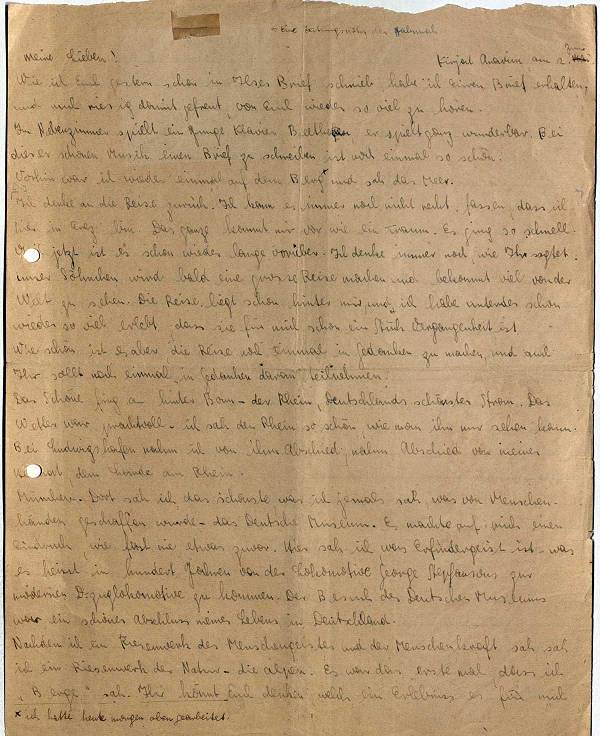 meine Lieben! Kirjath Anavim am 2. Juni
Wie ich Euch gestern schon in Ilses Brief schrieb habe ich einen Brief erhalten,
und mich riesig damit gefreut, von Euch wieder so viel zu hören.
Im Nebenzimmer spielt ein Junge Klavier Beethoven er spielt ganz wunderbar. Bei
dieser schönen Musik einen Brief zu schreiben ist noch einmal so schön.
Vorhin war ich wieder einmal auf dem Berg* und sah das Meer.
Ich denke an die Reise zurück. Ich kann es immer noch nicht recht fassen, dass ich
hier in Erez bin. Das ganze kommt mir vor wie ein Traum. Es ging so schnell.
jetzt ist es schon wieder lange vorüber. Ich denke immer noch wie Ihr sagtet.
unser Söhnchen wird bald eine grosse Reise machen und bekommt viel von der
Welt zu sehen. Die Reise liegt schon hinter mir, und ich habe unterdes schon
wieder so viel erlebt dass sie für mich schon ein Stück Vergangenheit ist
Wie schön ist es aber die Reise noch einmal in Gedanken zu machen, und auch
Ihr sollt noch einmal „in Gedanken daran“ teilnehmen.
Das Schöne fing an hinter Bonn – der Rhein, Deutschlands schönster Strom. Das
Wetter war prachtvoll – ich sah den Rhein so schön, wie man ihn nur sehen kann.
Bei Ludwigshafen nahm ich von ihm Abschied, nahm Abschied von meiner
dem Lande am Rhein.
München. Dort sah ich das schönste was ich jemals sah, was von Menschen-
händen geschaffen wurde – das Deutsche Museum. Es machte auf mich einen
Eindruck wie fast nie etwas zuvor. Hier sah ich was Erfindergeist ist – was
es heisst in hundert Jahren von der Lokomotive George Stephansons zur
modernen D-zuglokomotive zu kommen. Der Besuch des Deutschen Museums
war ein schöner Abschluss meines Lebens in Deutschland.
Nachdem ich ein Riesenwerk des Menschengeistes und der Menschenkraft sah sah
ich ein Riesenwerk der Natur – die Alpen. Es war das erste mal dass ich
„Berge“ sah. Ihr könnt Euch denken welch ein Erlebniss es für mich
* ich hatte heute morgen oben gearbeitet.